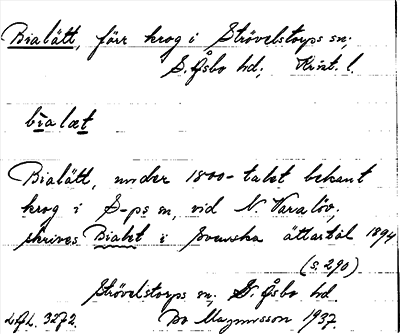 Bialätt, förr krog i Strövelstorps sn;
S. Åsbo hd; Krist. l.
bialæt
Bialätt, under 1800-talet bekant
krog i S-ps sn, vid N. Varalöv;
skrives Bialet i Svenska ättartal 1894
(s. 290)
Strövelstorps sn; S. Åsbo hd
LAL. 3272. Bo Magnusson 1937